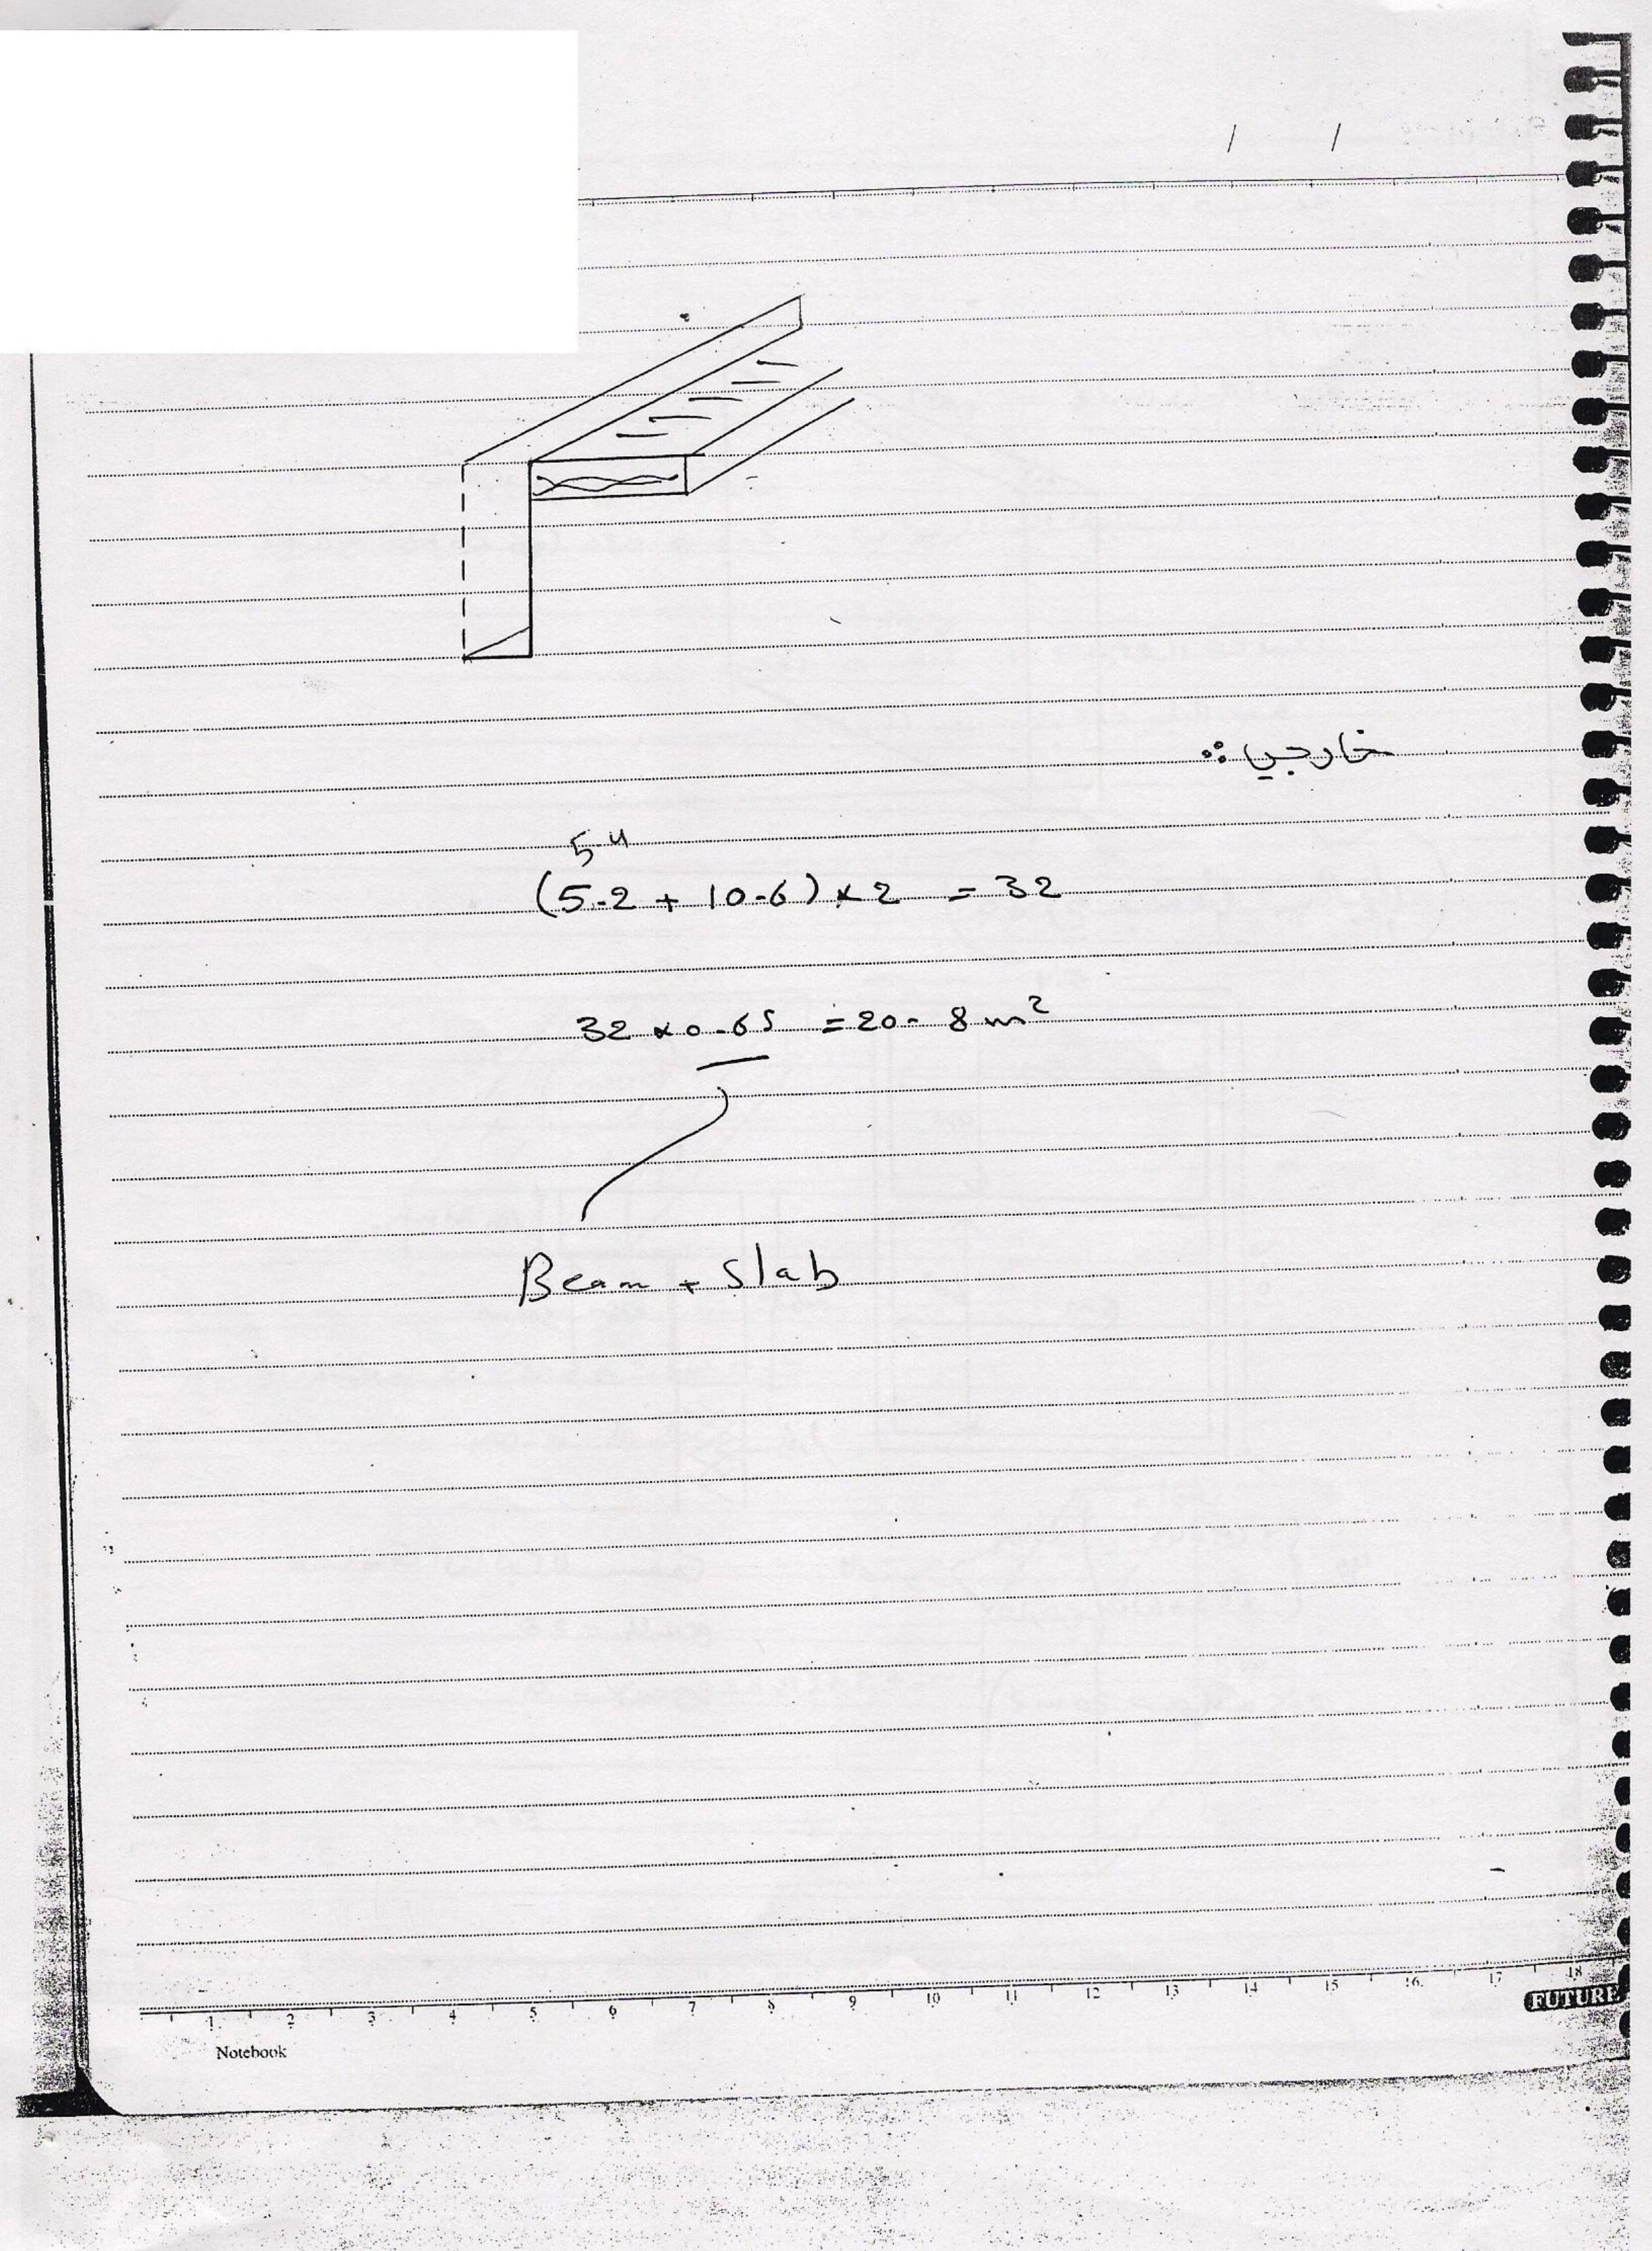 / /
خارجي:
54
(5.2 + 10.6) × 2 = 32
32 × 0.65 = 20.8 m²
Beam + Slab
1 2 3 4 5 6 7 8 9 10 11 12 13 14 15 16 17 18
FUTURE
Notebook